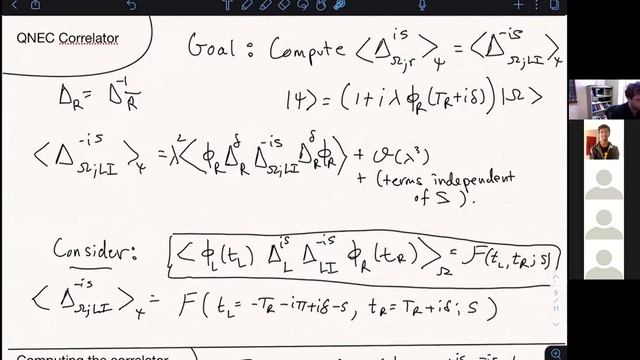 QNEC Correlator
Goal: Compute ⟨Δ^{is}_{Ω;r}⟩_Ψ = ⟨Δ^{-is}_{Ω;LI}⟩_Ψ
Δ_R = Δ^{-1}_{R̄}
|Ψ⟩ = (1 + iλ ϕ_R(T_R + iδ)) |Ω⟩
⟨Δ^{-is}_{Ω;LI}⟩_Ψ = λ² ⟨ϕ_R Δ^δ_R Δ^{-is}_{Ω;LI} Δ^δ_R ϕ_R⟩ + O(λ³)
+ (terms independent
of S).
Consider: ⟨ϕ_L(t_L) Δ^{is}_L Δ^{-is}_{LI} ϕ_R(t_R)⟩_Ω = F(t_L, t_R; s)
⟨Δ^{-is}_{Ω;LI}⟩_Ψ = F(t_L = -T_R - iπ + iδ - s, t_R = T_R + iδ; s)
5
11
Computing the correlator